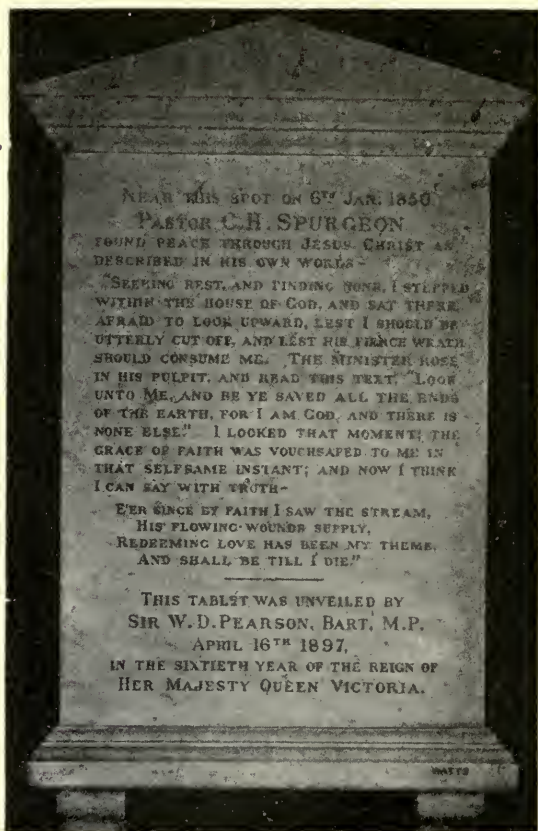 NEAR THIS SPOT ON 6TH JAN. 1850
PASTOR C. H. SPURGEON
FOUND PEACE THROUGH JESUS CHRIST AS
DESCRIBED IN HIS OWN WORDS-
"SEEKING REST, AND FINDING NONE, I STEPPED
WITHIN THE HOUSE OF GOD, AND SAT THERE,
AFRAID TO LOOK UPWARD, LEST I SHOULD BE
UTTERLY CUT OFF, AND LEST HIS FIERCE WRATH
SHOULD CONSUME ME. THE MINISTER ROSE
IN HIS PULPIT, AND READ THIS TEXT, "LOOK
UNTO ME, AND BE YE SAVED ALL THE ENDS
OF THE EARTH, FOR I AM GOD, AND THERE IS
NONE ELSE." I LOOKED THAT MOMENT; THE
GRACE OF FAITH WAS VOUCHSAFED TO ME IN
THAT SELFSAME INSTANT; AND NOW I THINK
I CAN SAY WITH TRUTH-
E'ER SINCE BY FAITH I SAW THE STREAM,
HIS FLOWING WOUNDS SUPPLY,
REDEEMING LOVE HAS BEEN MY THEME,
AND SHALL BE TILL I DIE."
THIS TABLET WAS UNVEILED BY
SIR W. D. PEARSON, BART, M.P.
APRIL 16TH 1897,
IN THE SIXTIETH YEAR OF THE REIGN OF
HER MAJESTY QUEEN VICTORIA.
WATTS